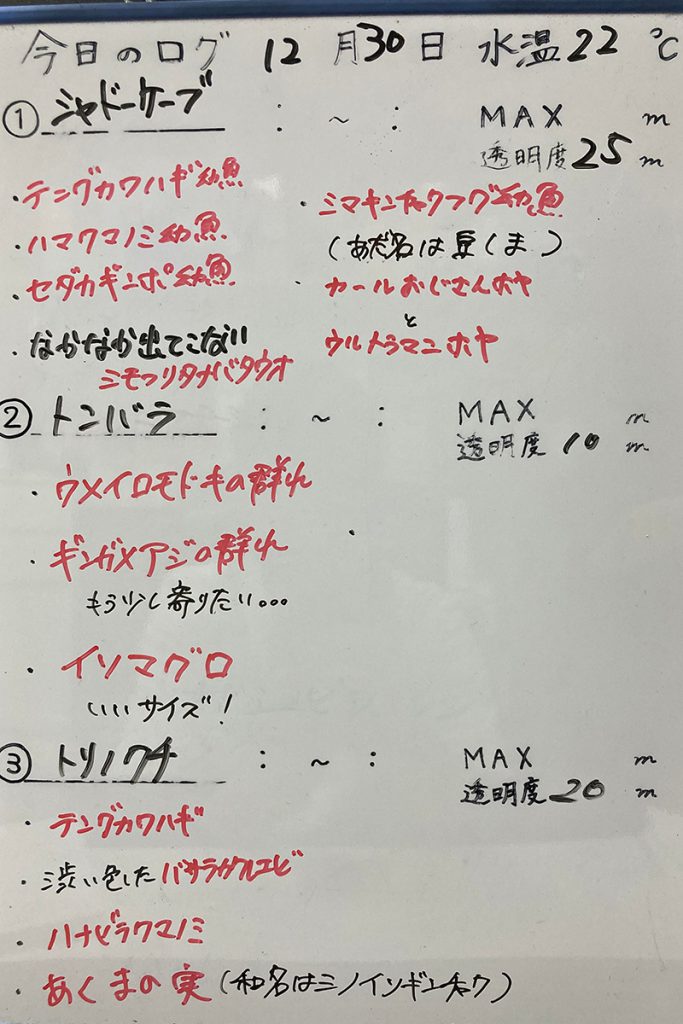 今日のログ 12月30日 水温22℃
① シャドーケーブ : ~ : MAX m
透明度25m
・テングカワハギ幼魚
・ハマクマノミ幼魚
・セダカギンポ幼魚
・なかなか出てこない
シモフリタナバタウオ
・シマキンチャクフグ幼魚
(あだ名は豆しま)
・カールおじさんホヤ
と
ウルトラマンホヤ
② トンバラ : ~ : MAX m
透明度10m
・ウメイロモドキの群れ
・ギンガメアジの群れ
もう少し寄りたい...
・イソマグロ
いいサイズ!
③ トリノクチ : ~ : MAX m
透明度20m
・テングカワハギ
・渋い色したバサラカクレエビ
・ハナビラクマノミ
・あくまの実(和名はミノイソギンチャク)